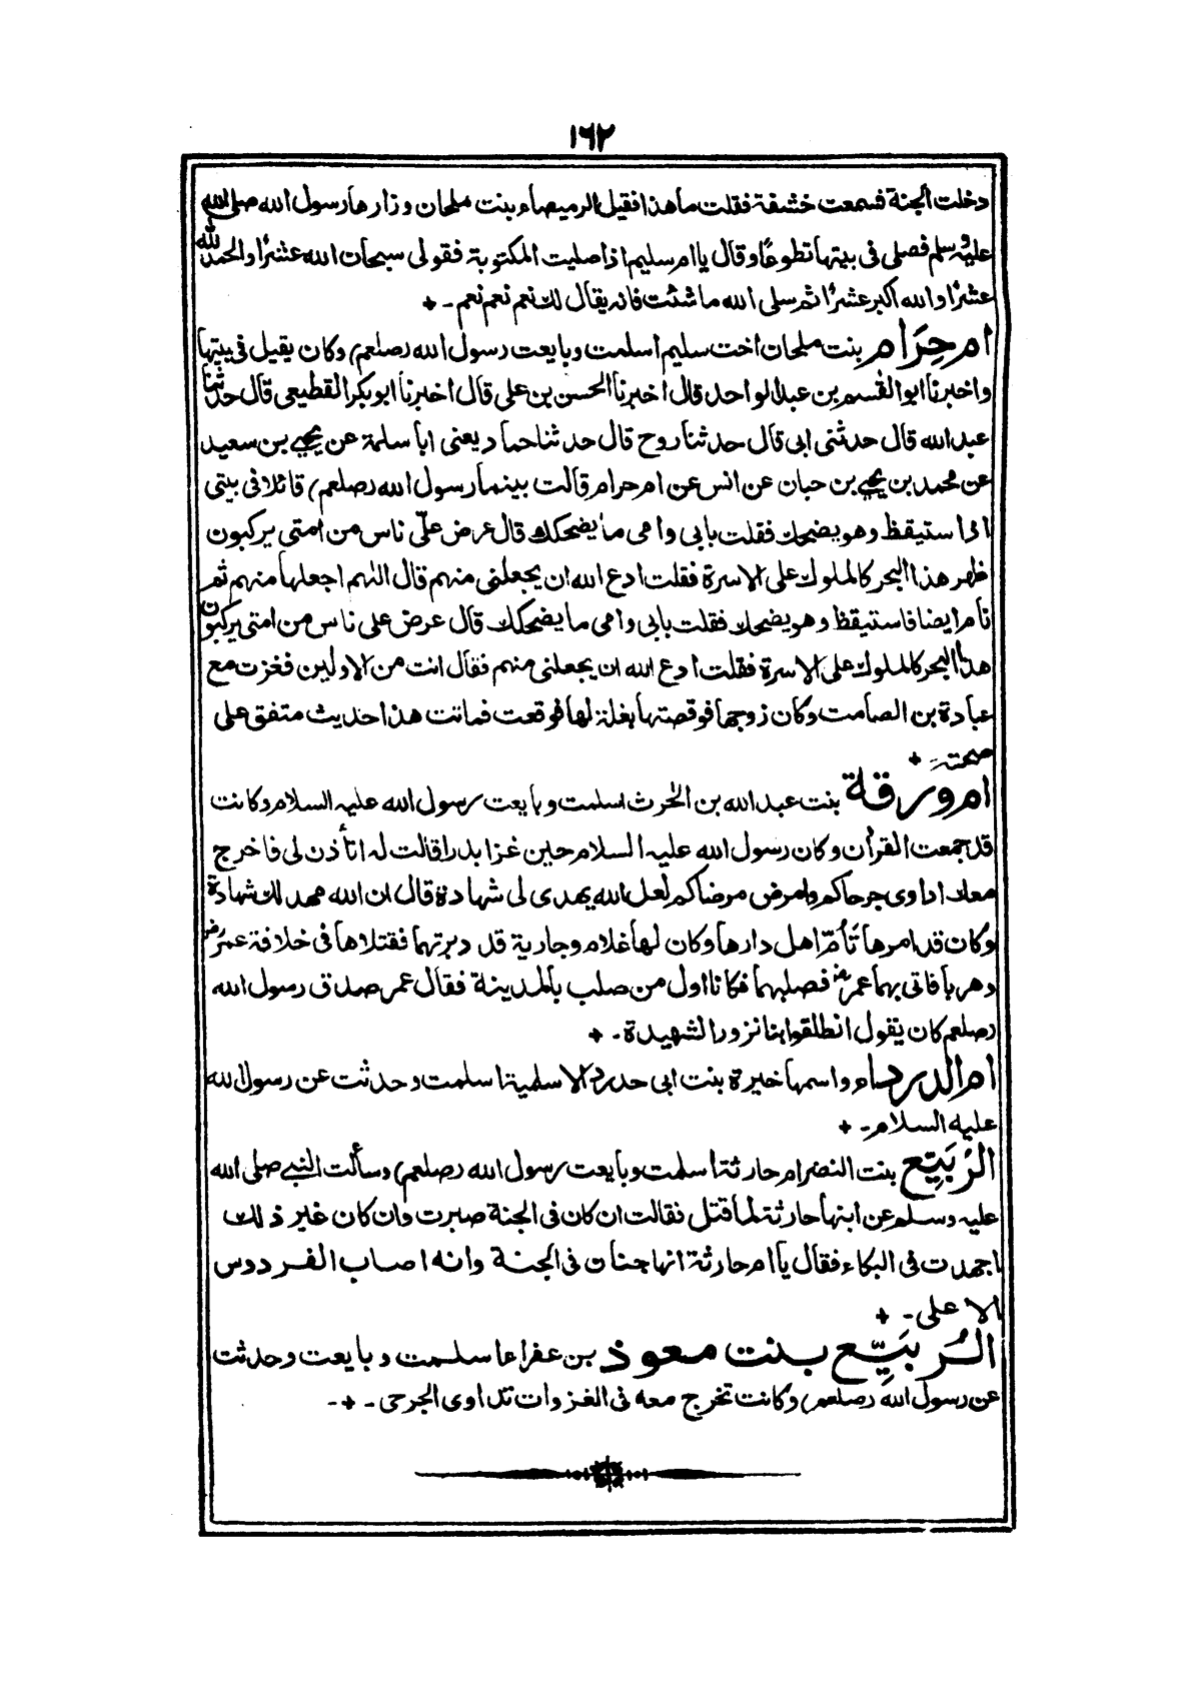 ١٦٢
دخلت الجنة فسمعت خشفة فقلت ماهذا فقيل الرميصاء بنت ملحان وزارها رسول الله صلى الله
عليه وسلم فصلى فى بيتها تطوعًا وقال يا ام سليم اذا صليت المكتوبة فقولى سبحان الله عشرًا والحمد لله
عشرًا والله اكبر عشرًا ثم سلى الله ما شئت فانه يقال لك نعم نعم نعم ـ +
ام حِرَام بنت ملحان اخت سليم اسلمت وبايعت رسول الله (صلعم) وكان يقيل فى بيتها
واخبرنا ابو القٰسم بن عبد الواحد قال اخبرنا الحسن بن على قال اخبرنا ابو بكر القطيعى قال حدثنا
عبد الله قال حدثنى ابى قال حدثنا روح قال حدثنا حماد يعنى ابا سلمة عن يحيى بن سعيد
عن محمد بن يحيى بن حبان عن انس عن ام حرام قالت بينما رسول الله (صلعم) قائلا فى بيتى
اذا ستيقظ وهو يضحك فقلت بابى وامى ما يضحكك قال عرض علىّ ناس من امتى يركبون
ظهر هذا البحر كالملوك على الاسرة فقلت ادع الله ان يجعلنى منهم قال اللهم اجعلها منهم ثم
نام ايضا فاستيقظ وهو يضحك فقلت بابى وامى ما يضحكك قال عرض على ناس من امتى يركبون
هذا البحر كالملوك على الاسرة فقلت ادع الله ان يجعلنى منهم فقال انت من الاولين فغزت مع
عبادة بن الصامت وكان زوجها فوقصتها بغلة لها فوقعت فماتت هذا حديث متفق على
صحته ـ +
ام ورقة بنت عبد الله بن الحٰرث اسلمت وبايعت رسول الله عليه السلام وكانت
قد جمعت القراٰن وكان رسول الله عليه السلام حين غزا بدرا قالت له اتأذن لى فاخرج
معك اداوى جرحاكم وامرض مرضاكم لعل الله يهدى لى شهادة قال ان الله مهد لك شهادة
وكان قد امرها تَأمّ اهل دارها وكان لها غلام وجارية قد دبرتهما فقتلاها فى خلافة عمر رض
وهربا فاتى بهما عمر رض فصلبهما فكانا اول من صلب بالمدينة فقال عمر صدق رسول الله
(صلعم كان يقول انطلقوا بنا نزور الشهيدة ـ +
ام الدرداء واسمها خيرة بنت ابى حدرد الاسلمية اسلمت وحدثت عن رسول الله
عليه السلام ـ +
الرُبَيِّع بنت النضر ام حارثة اسلمت وبايعت رسول الله (صلعم) وسألت النبى صلى الله
عليه وسلم عن ابنها حارثة لما قتل فقالت ان كان فى الجنة صبرت وان كان غير ذلك
اجهدت فى البكاء فقال يا ام حارثة انها جنان فى الجنة وانه اصاب الفردوس
الاعلى ـ +
الرُبَيِّع بنت معوذ بن عفراعا سلمت وبايعت وحدثت
عن رسول الله (صلعم) وكانت تخرج معه فى الغزوات تداوى الجرحى ـ + ـ